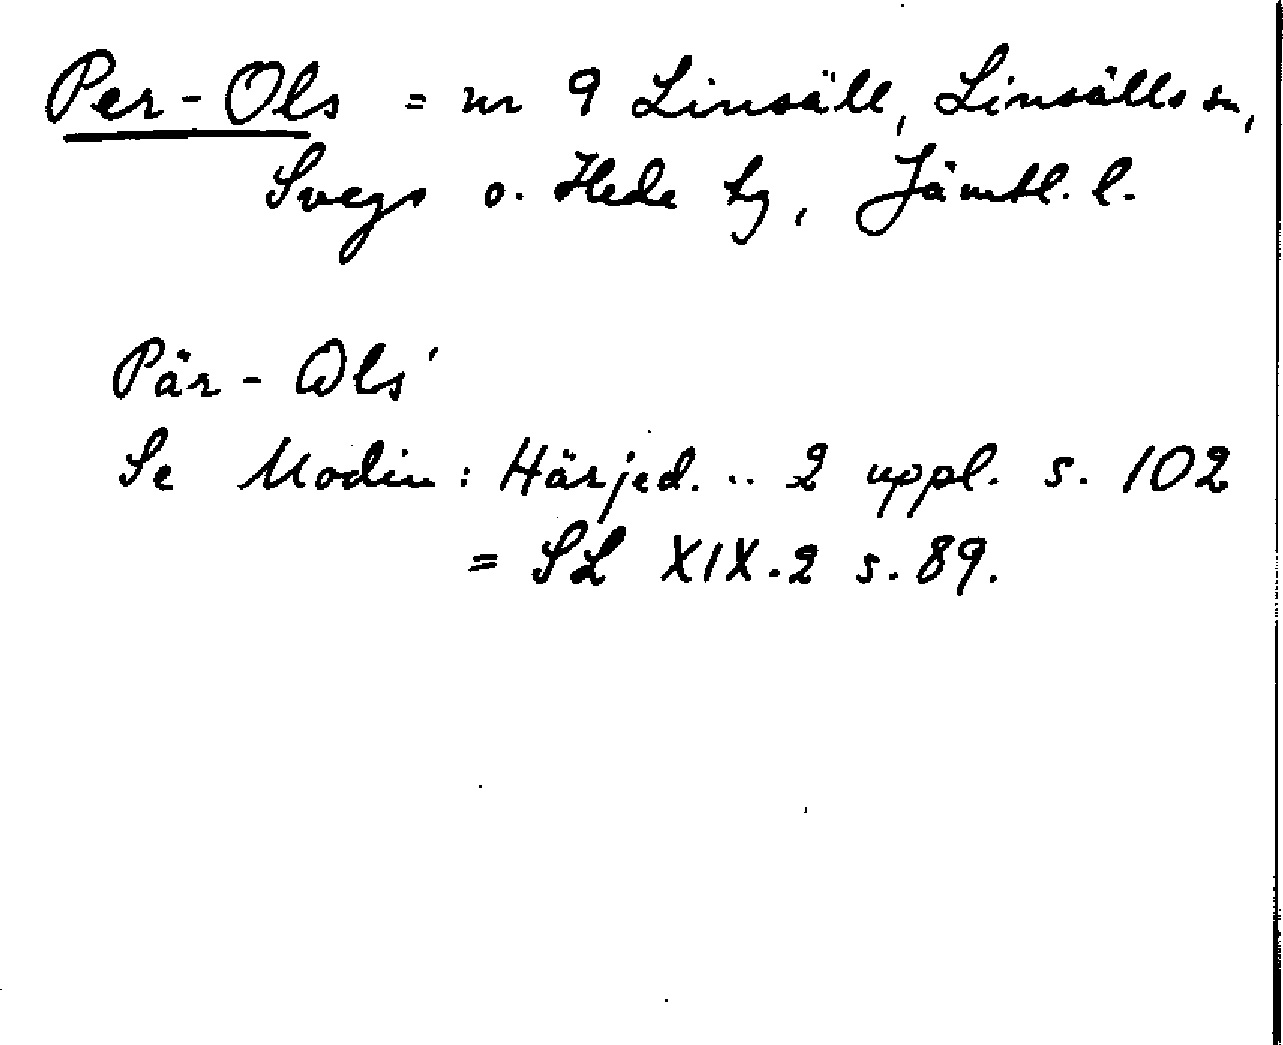 Per-Ols = nr 9 Linsäll, Linsälls sn,
Svegs o. Hede tg, Jämtl. l.
Pär-Ols'
Se Modin: Härjed. .. 2 uppl. s. 102
= SL XIX.2 s. 89.